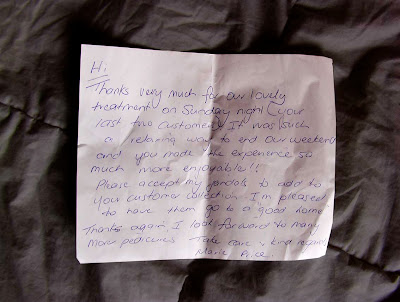 Hi
Thanks very much for our lovely
treatment on Sunday night (your
last two customers) It was such
a relaxing way to end our weekend
and you made the experience so
much more enjoyable!!
Please accept my sandals to add to
your customer collection I'm pleased
to have them go to a good home
Thanks again, I look forward to many
more pedicures Take care & kind regards
Marie